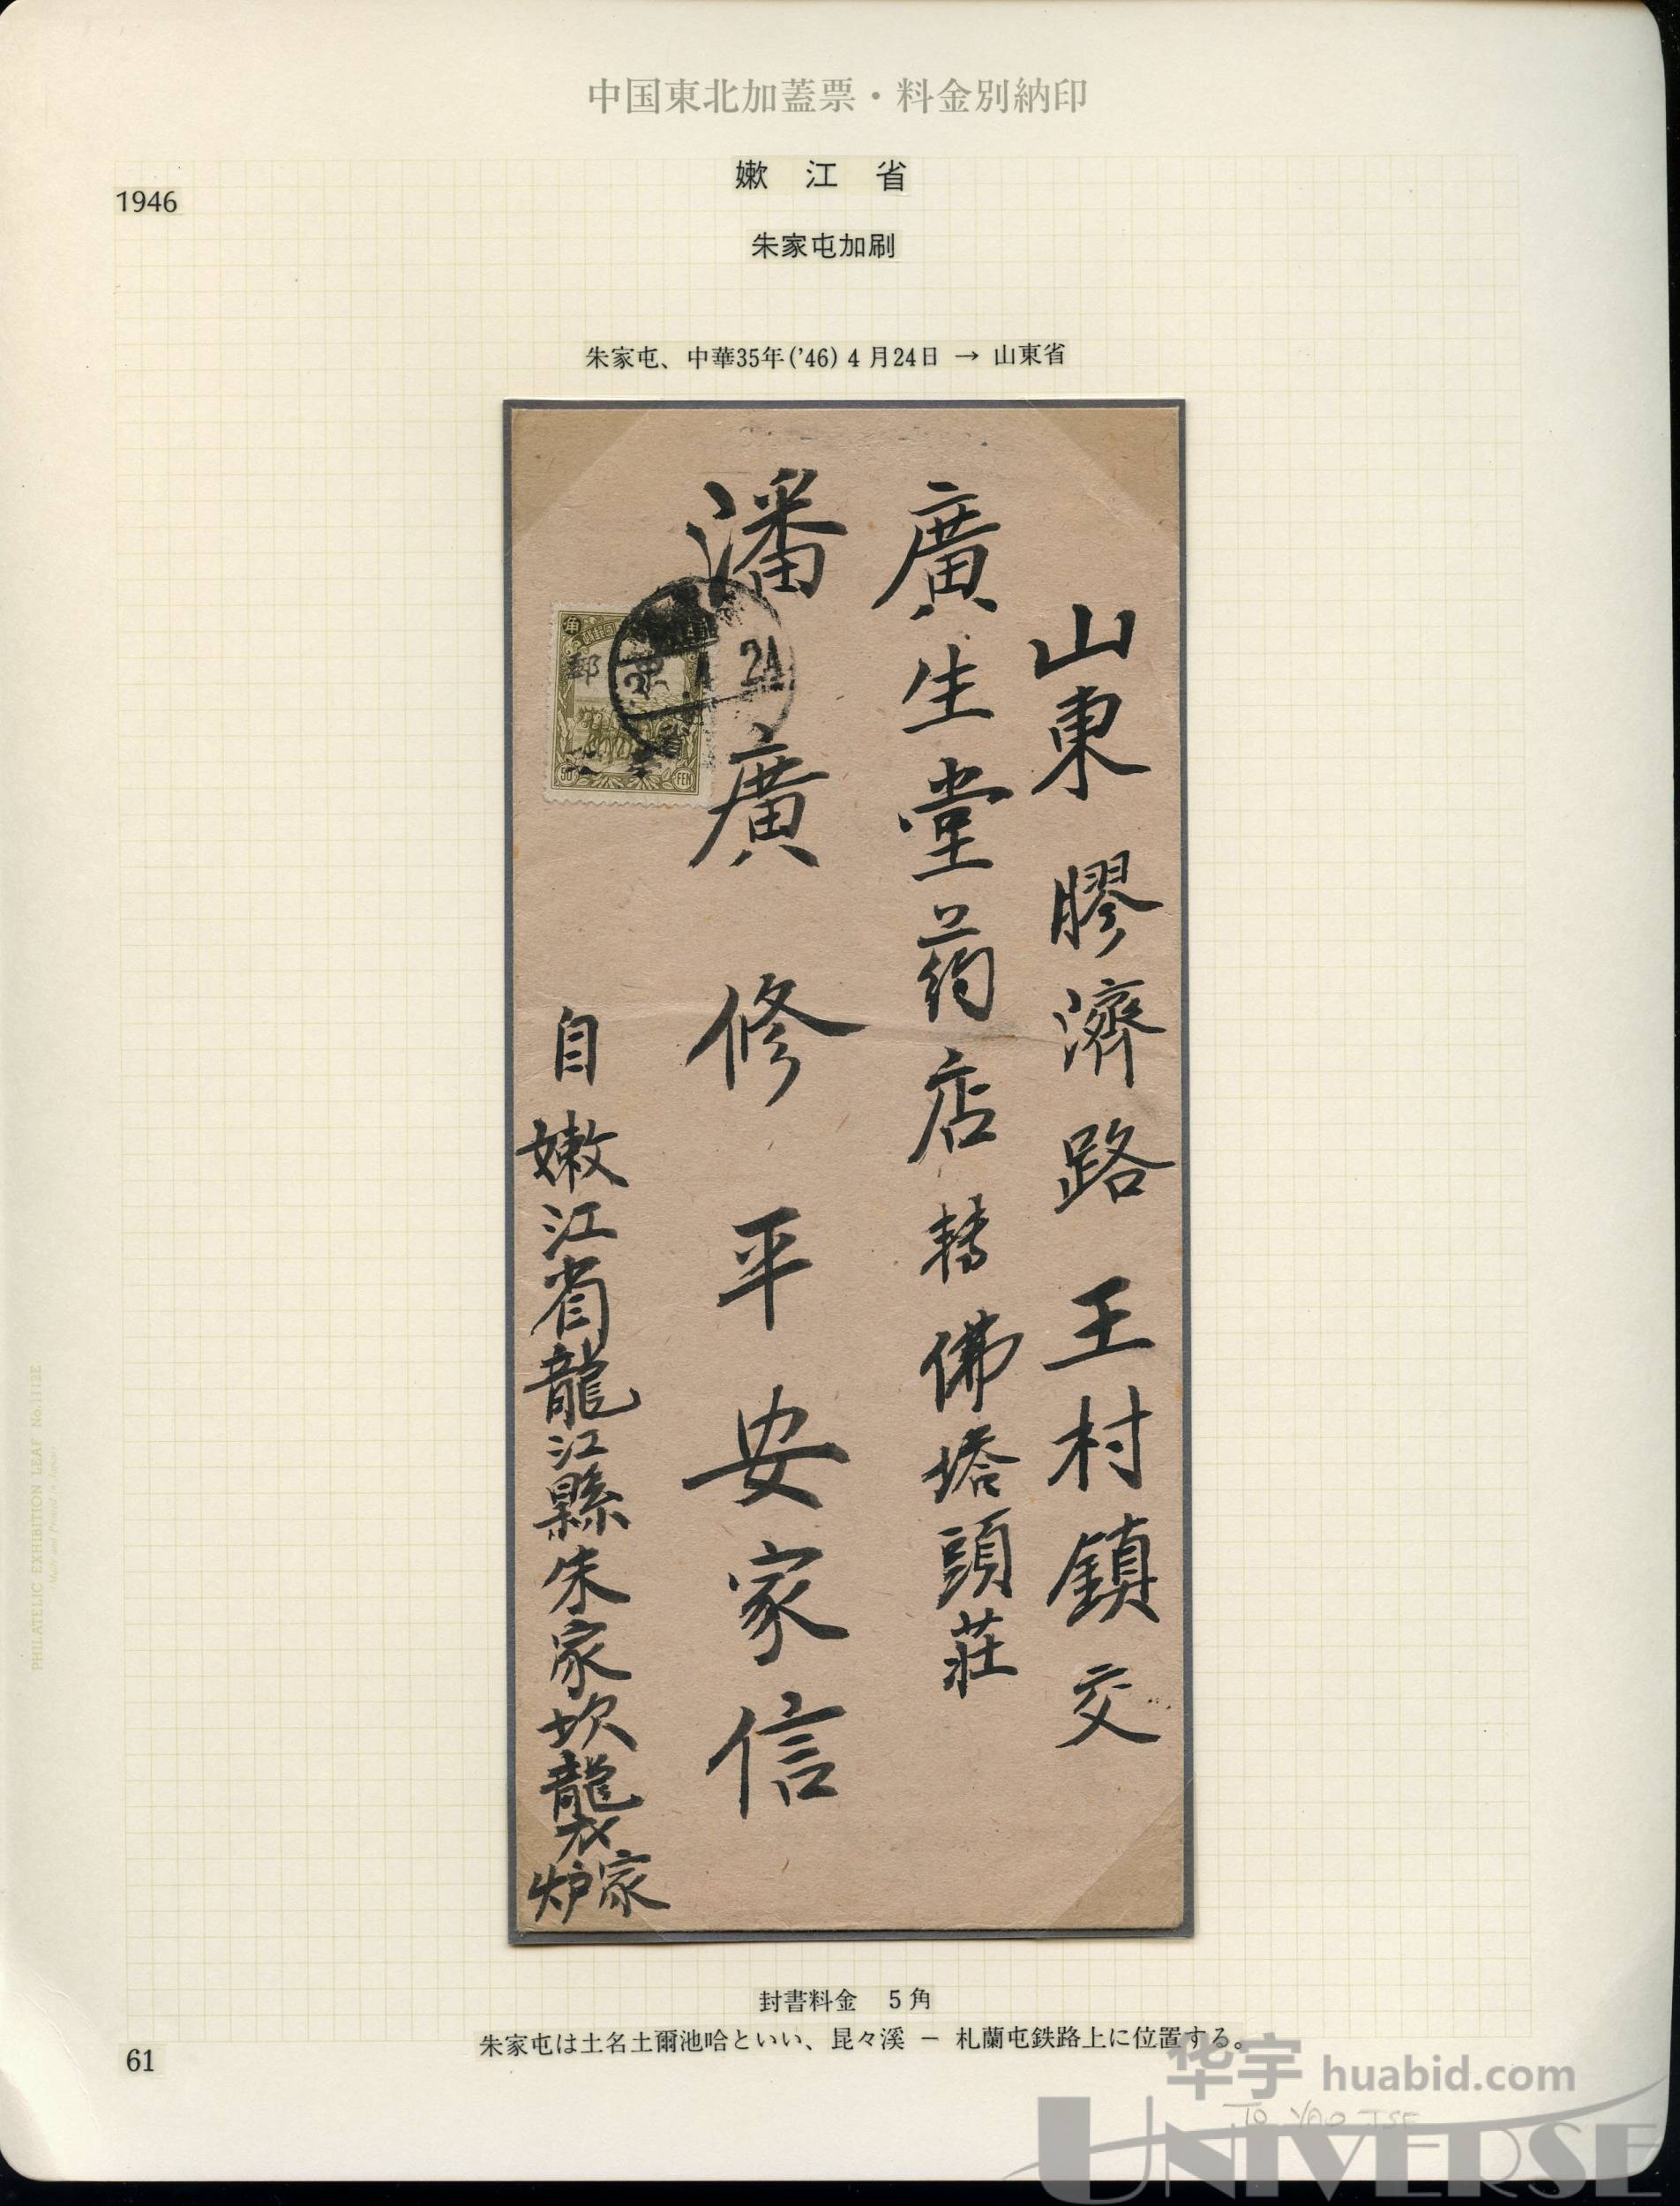 中国東北加蓋票・料金別納印
嫩 江 省
1946
朱家屯加刷
朱家屯、中華35年('46) 4月24日 → 山東省
山東膠濟路王村鎮交
廣生堂药店轉佛塔頭莊
潘廣修平安家信
自嫩江省龍江縣朱家坎龔家炉
角
郵
24
50
FEN
封書料金 5角
朱家屯は土名土爾池哈といい、昆々溪 − 札蘭屯鉄路上に位置する。
61
PHILATELIC EXHIBITION LEAF No.1112E
Made and Printed in Japan
华宇 huabid.com
TO YAO TSE
UNIVERSE